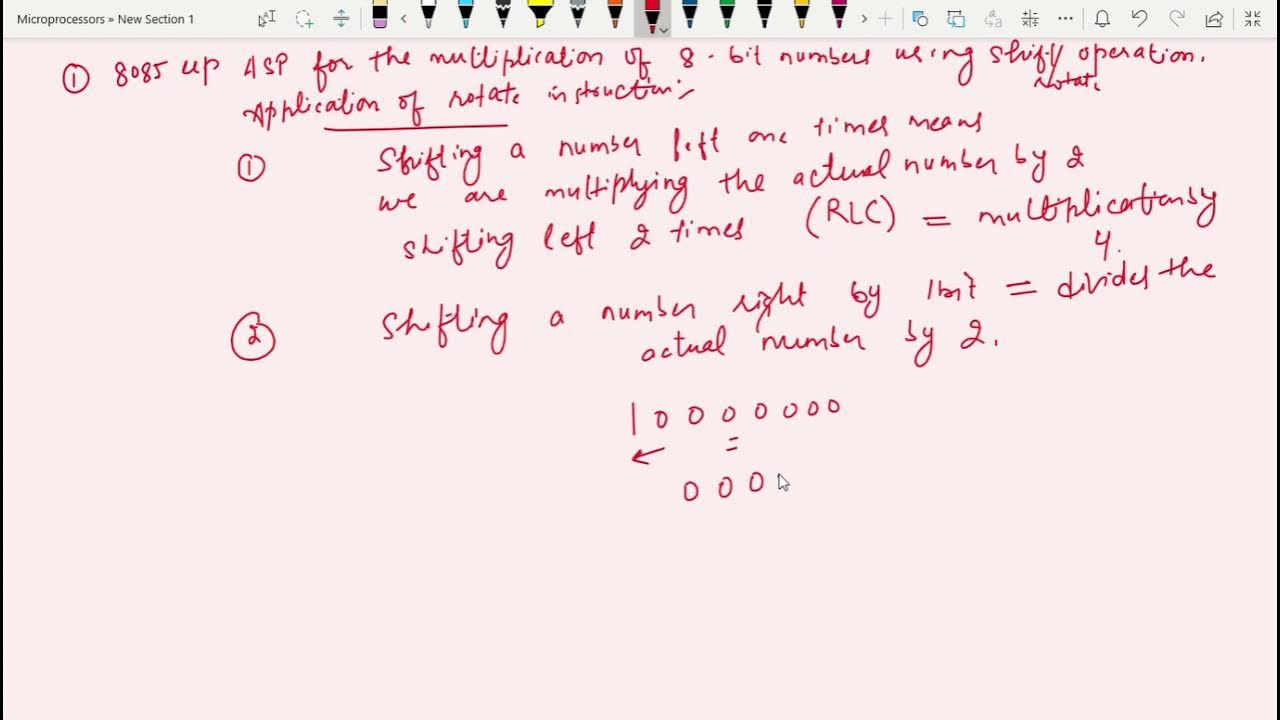 Microprocessors » New Section 1
① 8085 up ASP for the multiplication of 8-bit numbers using shift/ operation.
rotate
Application of rotate instruction:-
① Shifting a number left one times means
we are multiplying the actual number by 2
shifting left 2 times (RLC) = multiplication by
4.
② Shifting a number right by 1bit = divides the
actual number by 2.
1 0 0 0 0 0 0 0
← =
0 0 0